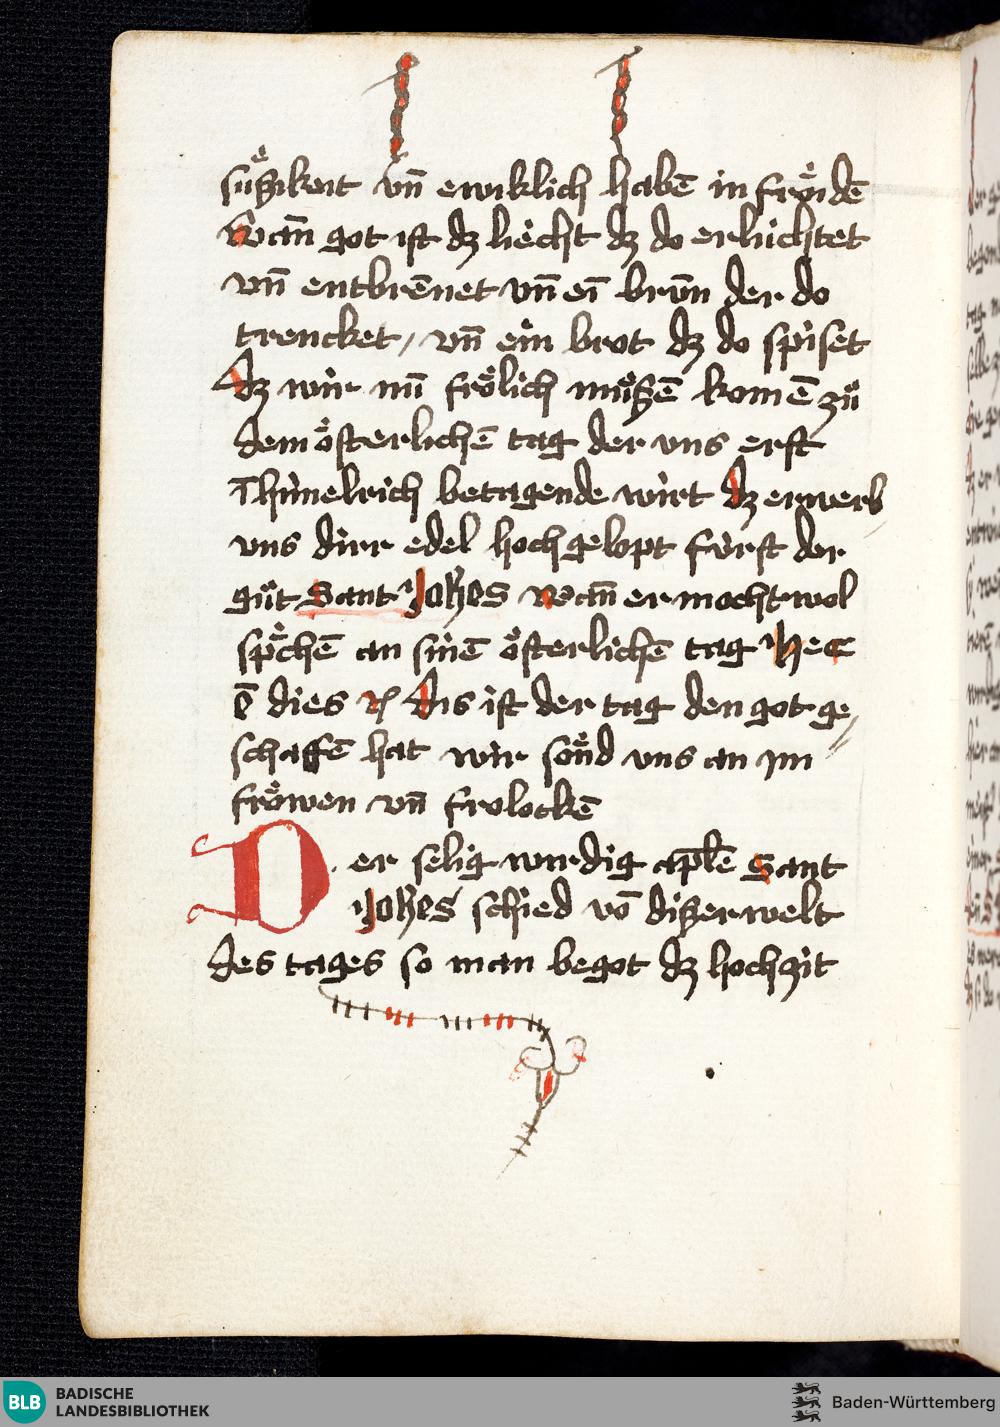 suͤßikeit vn̄ ewiklich habē in froͤidē
Wan̄ got ist dz liecht dz do erluchtet
vn̄ entbrēnet vn̄ eī brūn der do
trencket / vn̄ ein brot dz do spiset
Dz wir nū froͤlich muͤßē komē zuͦ
dem oͤsterlichē tag der vns erst
Jhimelrich betagende wirt Dz erwerb
vns dirr edel hochgelopt fúrst der
guͦt Sant Johes wan̄ er mocht wol
spͤchē an sinē oͤsterlichē tag Hec
ē dies Dis ist der tag den got ge
schaffē hat wir soͤnd vns an im
froͤwen vn̄ frolockē
Der selig wirdig aplē Sant
Johes schied vō dißer welt
des tages so man begot dz hochzit
BLB
BADISCHE
LANDESBIBLIOTHEK
Baden-Württemberg